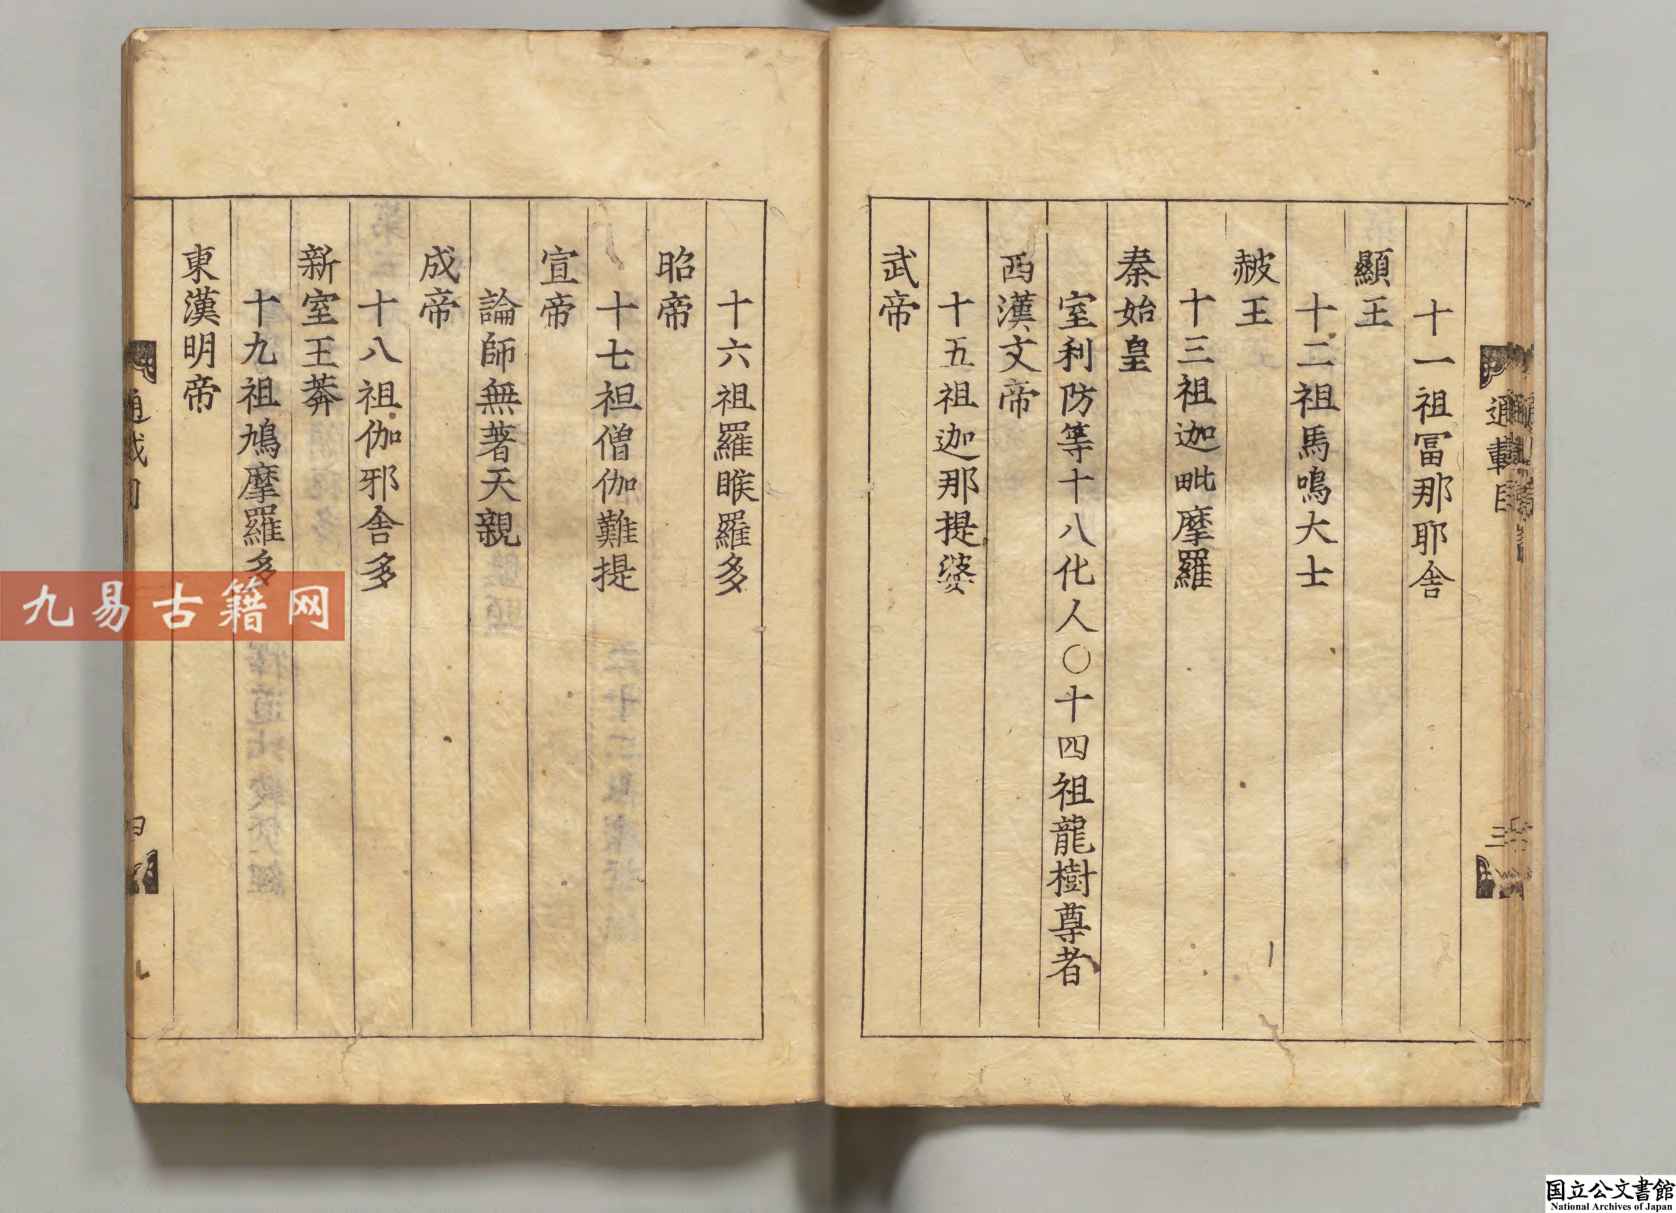 十一祖冨那耶舍
顯王
十二祖馬鳴大士
赧王
十三祖迦毗摩羅
秦始皇
室利防等十八化人〇十四祖龍樹尊者
西漢文帝
十五祖迦那提婆
武帝
通載目
三
十六祖羅睺羅多
昭帝
十七祖僧伽難提
宣帝
論師無著天親
成帝
十八祖伽邪舍多
新室王莽
十九祖鳩摩羅多
東漢明帝
九易古籍网
国立公文書館
National Archives of Japan